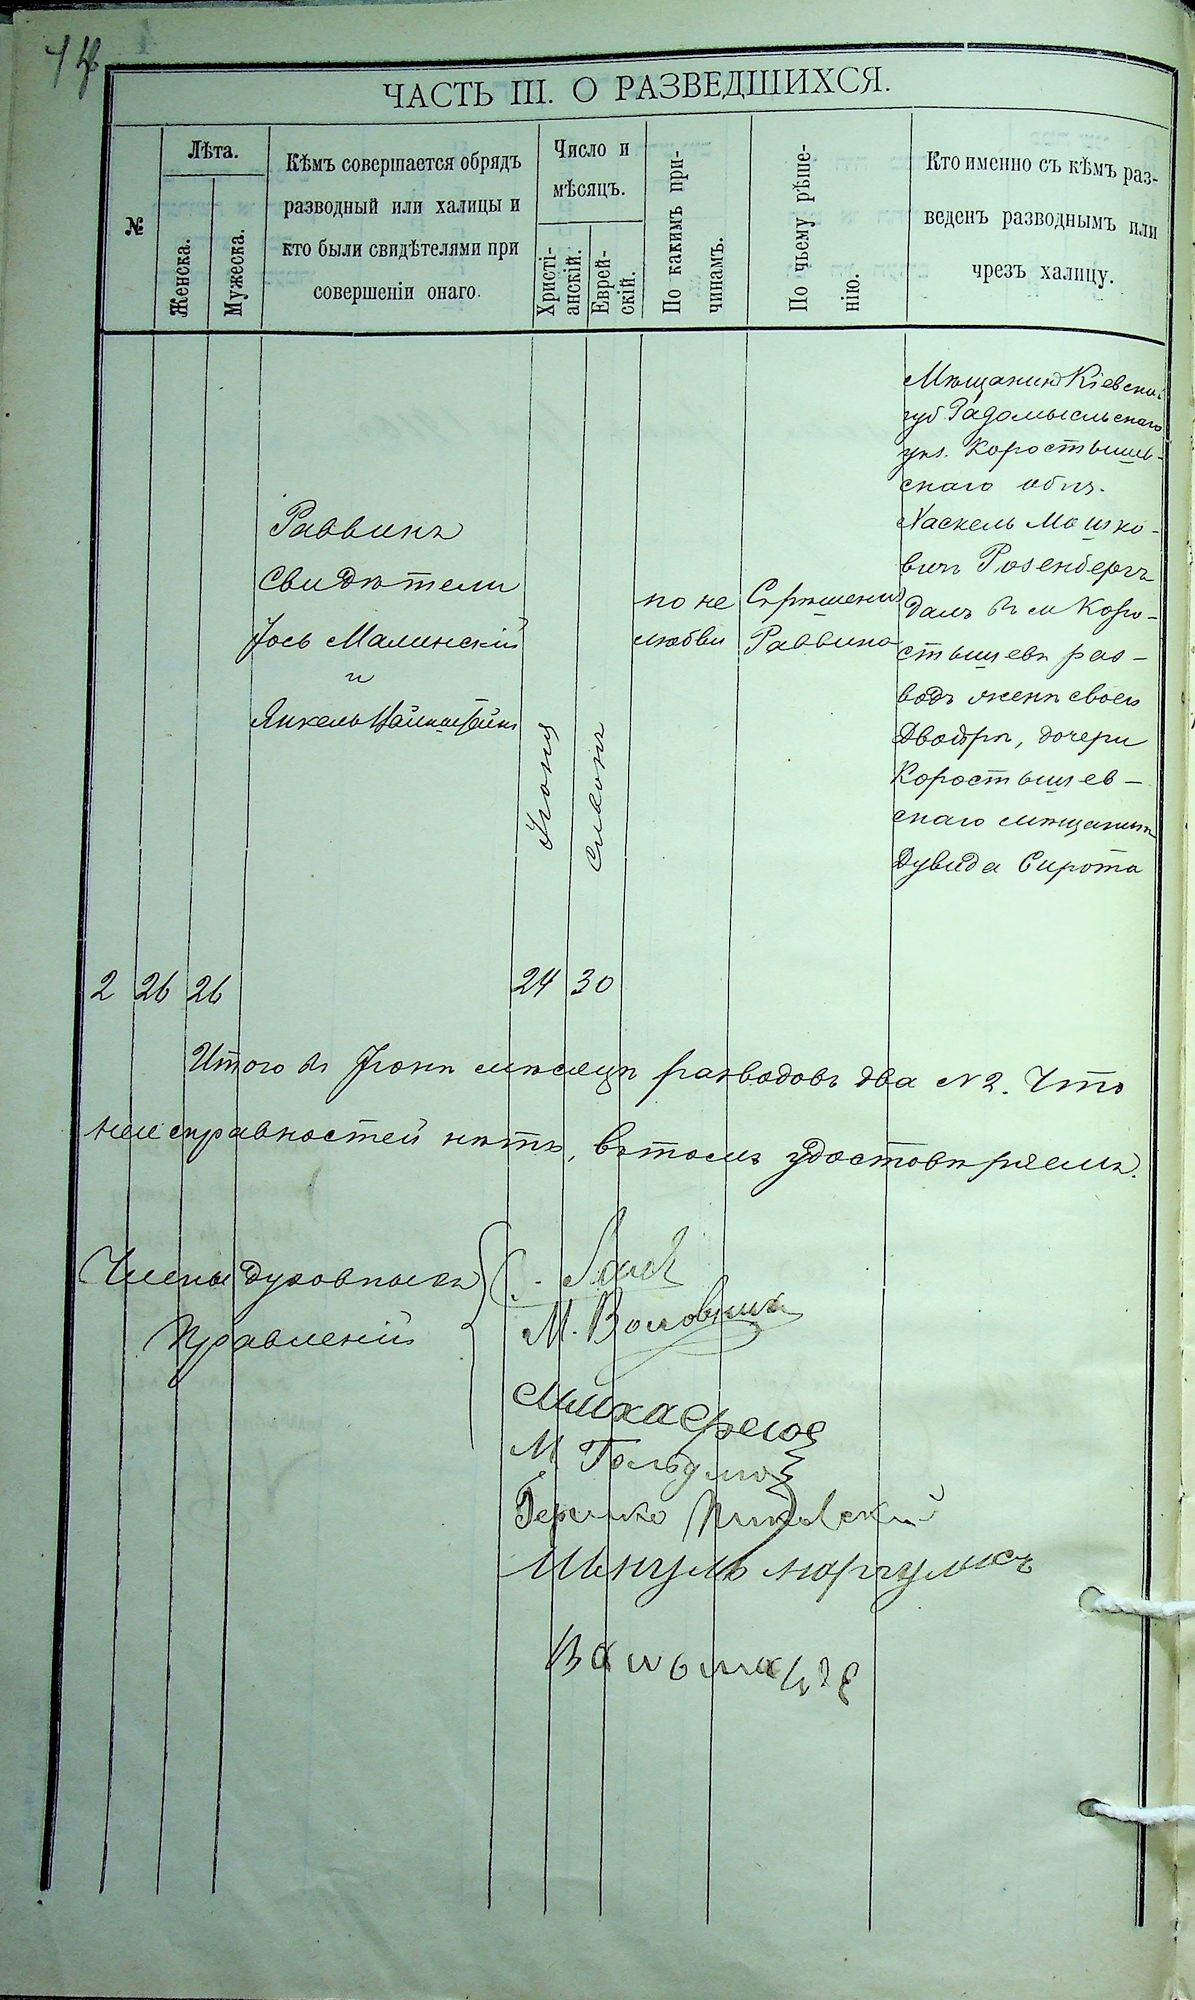 ЧАСТЬ III. О РАЗВЕДШИХСЯ.
№
Лѣта.
Женска.
Мужеска.
Кѣмъ совершается обрядъ
разводный или халицы и
кто были свидѣтелями при
совершеніи онаго.
Число и
мѣсяцъ.
Христі-
анскій.
Еврей-
скій.
По какимъ при-
чинамъ.
По чьему рѣше-
нію.
Кто именно съ кѣмъ раз-
веденъ разводнымъ или
чрезъ халицу.
2
26
26
Раввинъ
Свидѣтели
Іось Малинскій
и
Янкель
Іюня
24
Сивонъ
30
по не
любви
С рѣшенія
Раввина
Мѣщанинъ Кіевской
губ. Радомысльскаго
уѣз. Коростышев-
скаго общ.
Хаскель Мошко-
вичъ Розенбергъ
далъ въ м Коро-
стышевѣ раз-
водъ женѣ своей
Двойрѣ, дочери
Коростышев-
скаго мѣщанина
Дувида Сирота
Итого въ Іюнѣ мѣсяцѣ разводовъ два №2. Что
неисправностей нѣтъ, въ томъ удостовѣряемъ.
Члены Духовныхъ
Правленій
М. Воловник
М
Гершко